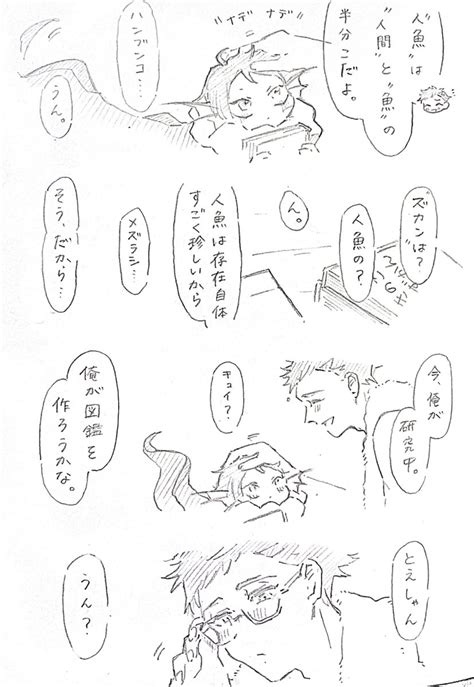 "人魚"は
"人間"と"魚"の
半分こだよ。
ナデ
ナデ
ハンブンコ…
うん。
"ズカン"は?
人魚の?
ん。
人魚は存在自体
すごく珍しいから
メズラシ…
そう、だから…
今、俺が
研究中。
キョイ?
俺が図鑑を
作ろうかな。
とえしゃん
うん?